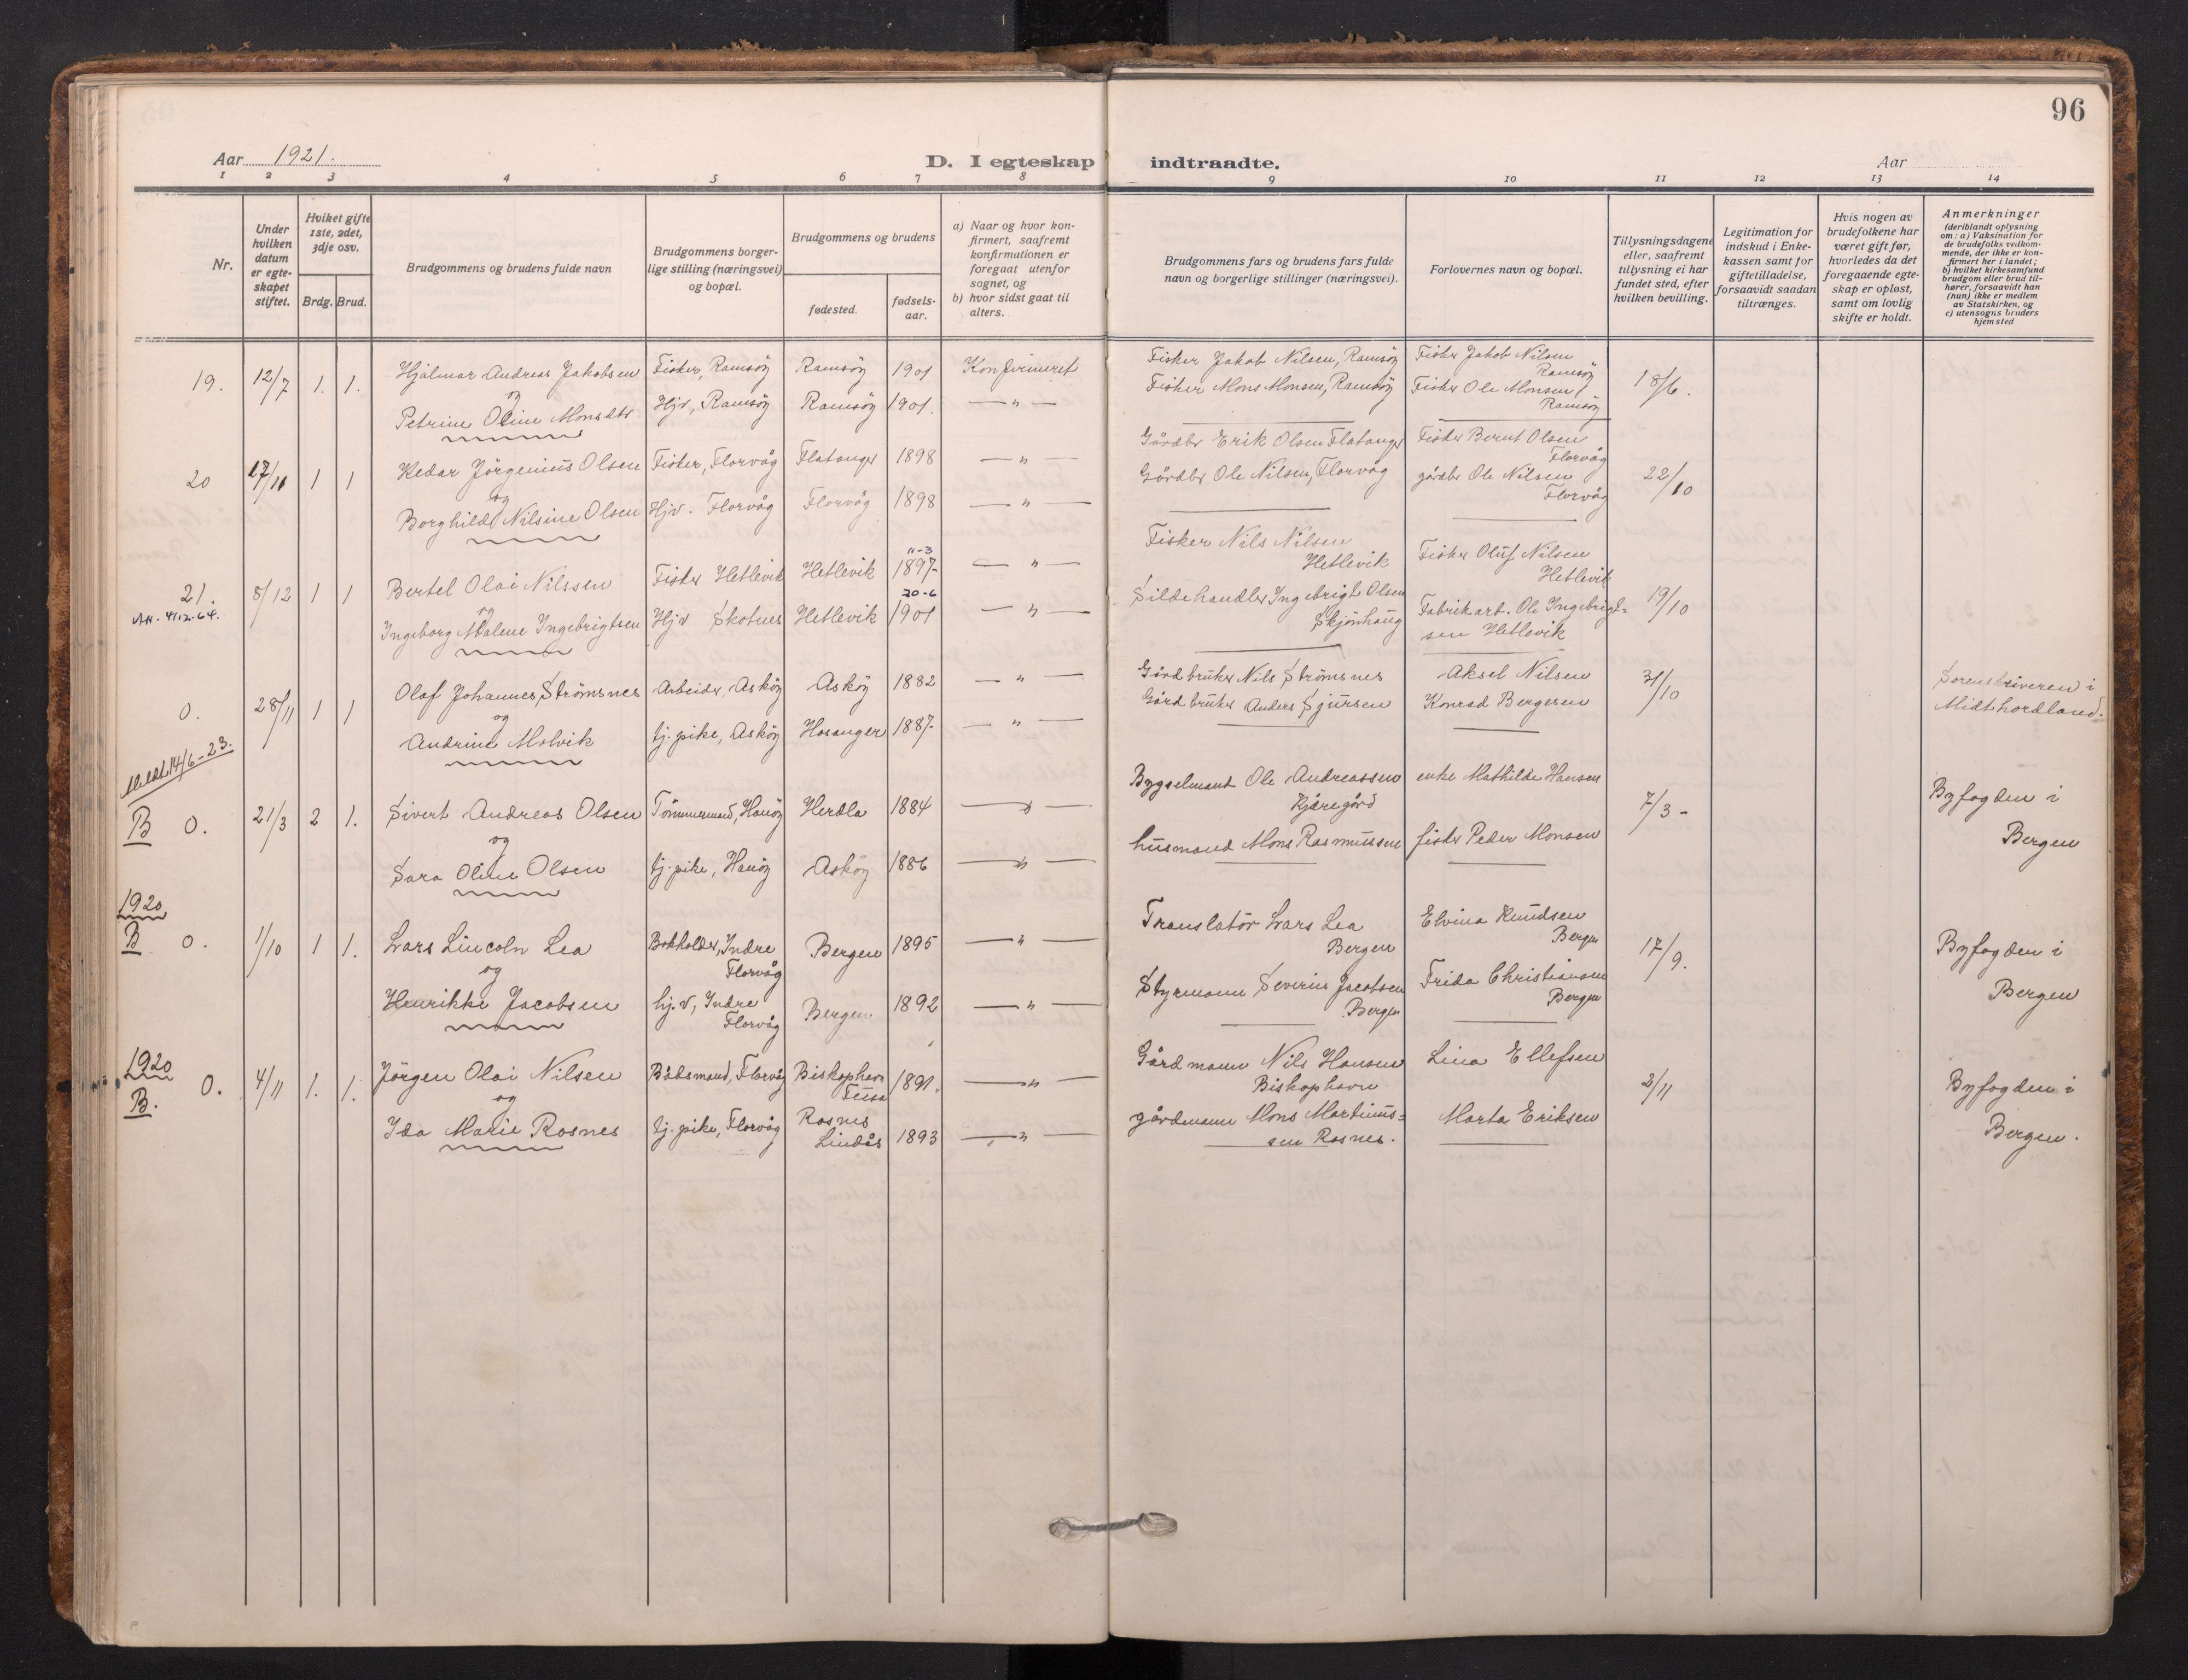 96
Aar 1921.
D. I egteskap indtraadte.
Aar
1 2 3 4 5 6 7 8 9 10 11 12 13 14
Nr.
Under hvilken datum er egteskapet stiftet.
Hviket gifte 1ste, 2det, 3dje osv.
Brdg. Brud.
Brudgommens og brudens fulde navn
Brudgommens borgerlige stilling (næringsvei) og bopæl.
Brudgommens og brudens
fødested.
fødselsaar.
a) Naar og hvor konfirmert, saafremt konfirmationen er foregaat utenfor sognet, og
b) hvor sidst gaat til alters.
Brudgommens fars og brudens fars fulde navn og borgerlige stillinger (næringsvei).
Forlovernes navn og bopæl.
Tillysningsdagene eller, saafremt tillysning ei har fundet sted, efter hvilken bevilling.
Legitimation for indskud i Enkekassen samt for giftetilladelse, forsaavidt saadan tiltrænges.
Hvis nogen av brudefolkene har været gift før, hvorledes da det foregaaende egteskap er opløst, samt om lovlig skifte er holdt.
Anmerkninger (deriblandt oplysning om: a) Vaksination for de brudefolks vedkommende, der ikke er konfirmert her i landet; b) hvilket kirkesamfund brudgom eller brud tilhører, forsaavidt han (hun) ikke er medlem av Statskirken, og c) utensogns bruders hjemsted
19. 12/7 1. 1. Hjalmar Andreas Jakobsen Fisker, Ramsöy Ramsöy 1901 Konfirmeret Fisker Jakob Nilsen, Ramsöy Fisker Jakob Nilsen Ramsöy 18/6.
og
Petrine Oline Monsdtr Hjv, Ramsöy Ramsöy 1901. — " — Fisker Mons Monsen, Ramsöy Fisker Ole Monsen Ramsöy
20 17/11 1 1 Hedar Jörgenius Olsen Fisker, Florvåg Flatanger 1898 — " — Gårdbr Erik Olsen Flatanger Fisker Bernt Olsen Florvåg 22/10
og
Borghild Nilsine Olsen Hjv. Florvåg Florvåg 1898 — " — Gårdbr Ole Nilsen, Florvåg gårdbr Ole Nilsen Florvåg
21. 8/12 1 1 Bertel Olai Nilssen Fisker Hetlevik Hetlevik 11-3 1897- — " — Fisker Nils Nilsen Hetlevik Fisker Oluf Nilsen Hetlevik 19/10
og
Ingeborg Malene Ingebrigtsen Hjv Skotnes Hetlevik 20-6 1901 — " — Sildehandler Ingebrigt Olsen Skjönhaug Fabrikarb. Ole Ingebrigtsen Hetlevik
0. 28/11 1 1 Olaf Johannes Strömsnes Arbeider, Asköy Asköy 1882 — " — Gårdbruker Nils Strömsnes Aksel Nilsen 31/10 Sorenskriveren i Midthordland.
og
Andrine Molvik tj. pike, Asköy Hosanger 1887- — " — Gårdbruker Anders Sjursen Konrad Bergesen
Meldt 14/6-23.
B 0. 21/3 2 1. Sivert Andreas Olsen Tömmermand, Hanöy Herdla 1884 — " — Bygselmand Ole Andreassen Kjæregård enke Mathilde Hansen 7/3- Byfogden i Bergen
og
Sara Oline Olsen tj. pike, Hanöy Asköy 1886 — " — husmand Mons Rasmussen fisker Peder Monsen
1920
B 0. 1/10 1 1. Lars Lincoln Lea Bokholder, Indre Florvåg Bergen 1895 — " — Translatör Lars Lea Bergen Elvina Knudsen Bergen 17/9. Byfogden i Bergen
og
Henrikke Jacobsen hj.v, Indre Florvåg Bergen 1892 — " — Styrmann Severin Jacobsen Bergen Frida Christiansen Bergen
1920
B. 0. 4/11 1. 1. Jörgen Olai Nilsen Båtsmand, Florvåg Biskophavn Fusa 1891. — " — Gårdmann Nils Hansen Biskophavn Lina Ellefsen 2/11 Byfogden i Bergen.
og
Ida Marie Rosnes tj. pike, Florvåg Rosnes Lindås 1893 — " — gårdmann Mons Martinussen Rosnes. Marta Eriksen